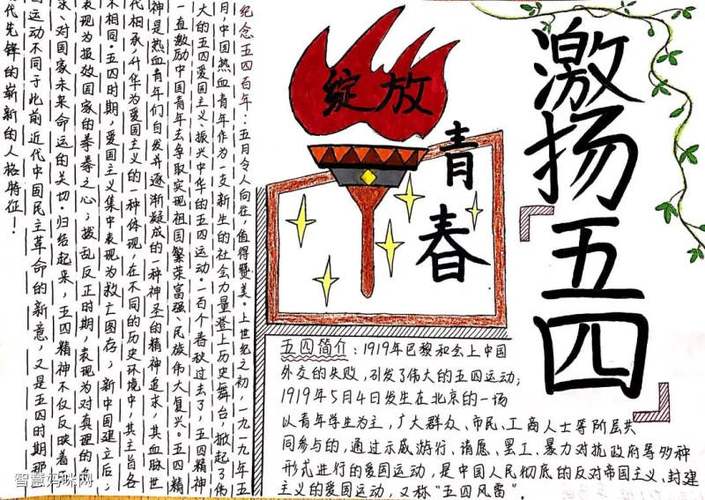 激扬
「五四」
绽放
青春
纪念五四百年:五月令人向往,值得赞美。上世纪之初,一九一九年五
月中国热血青年作为一支新生的社会力量登上历史舞台,掀起了伟
大的五四爱国主义、振兴中华的五四运动。一百个春秋过去了,五四精神
一直激励中国青年去争取实现祖国繁荣富强、民族伟大复兴。五四精
神是热血青年们自发并逐渐凝成的一种神圣的精神追求,其血脉世
代相承,升华为爱国主义的一种体现,在不同的历史环境中,其主旨各
不相同。五四时期,爱国主义集中表现为救亡图存,新中国建立后,
表现为报效国家的拳拳之心;拨乱反正时期,表现为对真理的
求、对国家未来命运的关切。归结起来,五四精神不仅反映着
运动不同于此前近代中国民主革命的新意,又是五四时期那
代先锋的崭新的人格特征!
五四简介:1919年巴黎和会上中国
外交的失败,引发了伟大的五四运动;
1919年5月4日发生在北京的一场
以青年学生为主,广大群众、市民、工商人士等阶层共
同参与的,通过示威游行、请愿、罢工、暴力对抗政府等多种
形式进行的爱国运动,是中国人民彻底的反对帝国主义、封建
主义的爱国运动,又称"五四风雷"。
智慧妈咪网